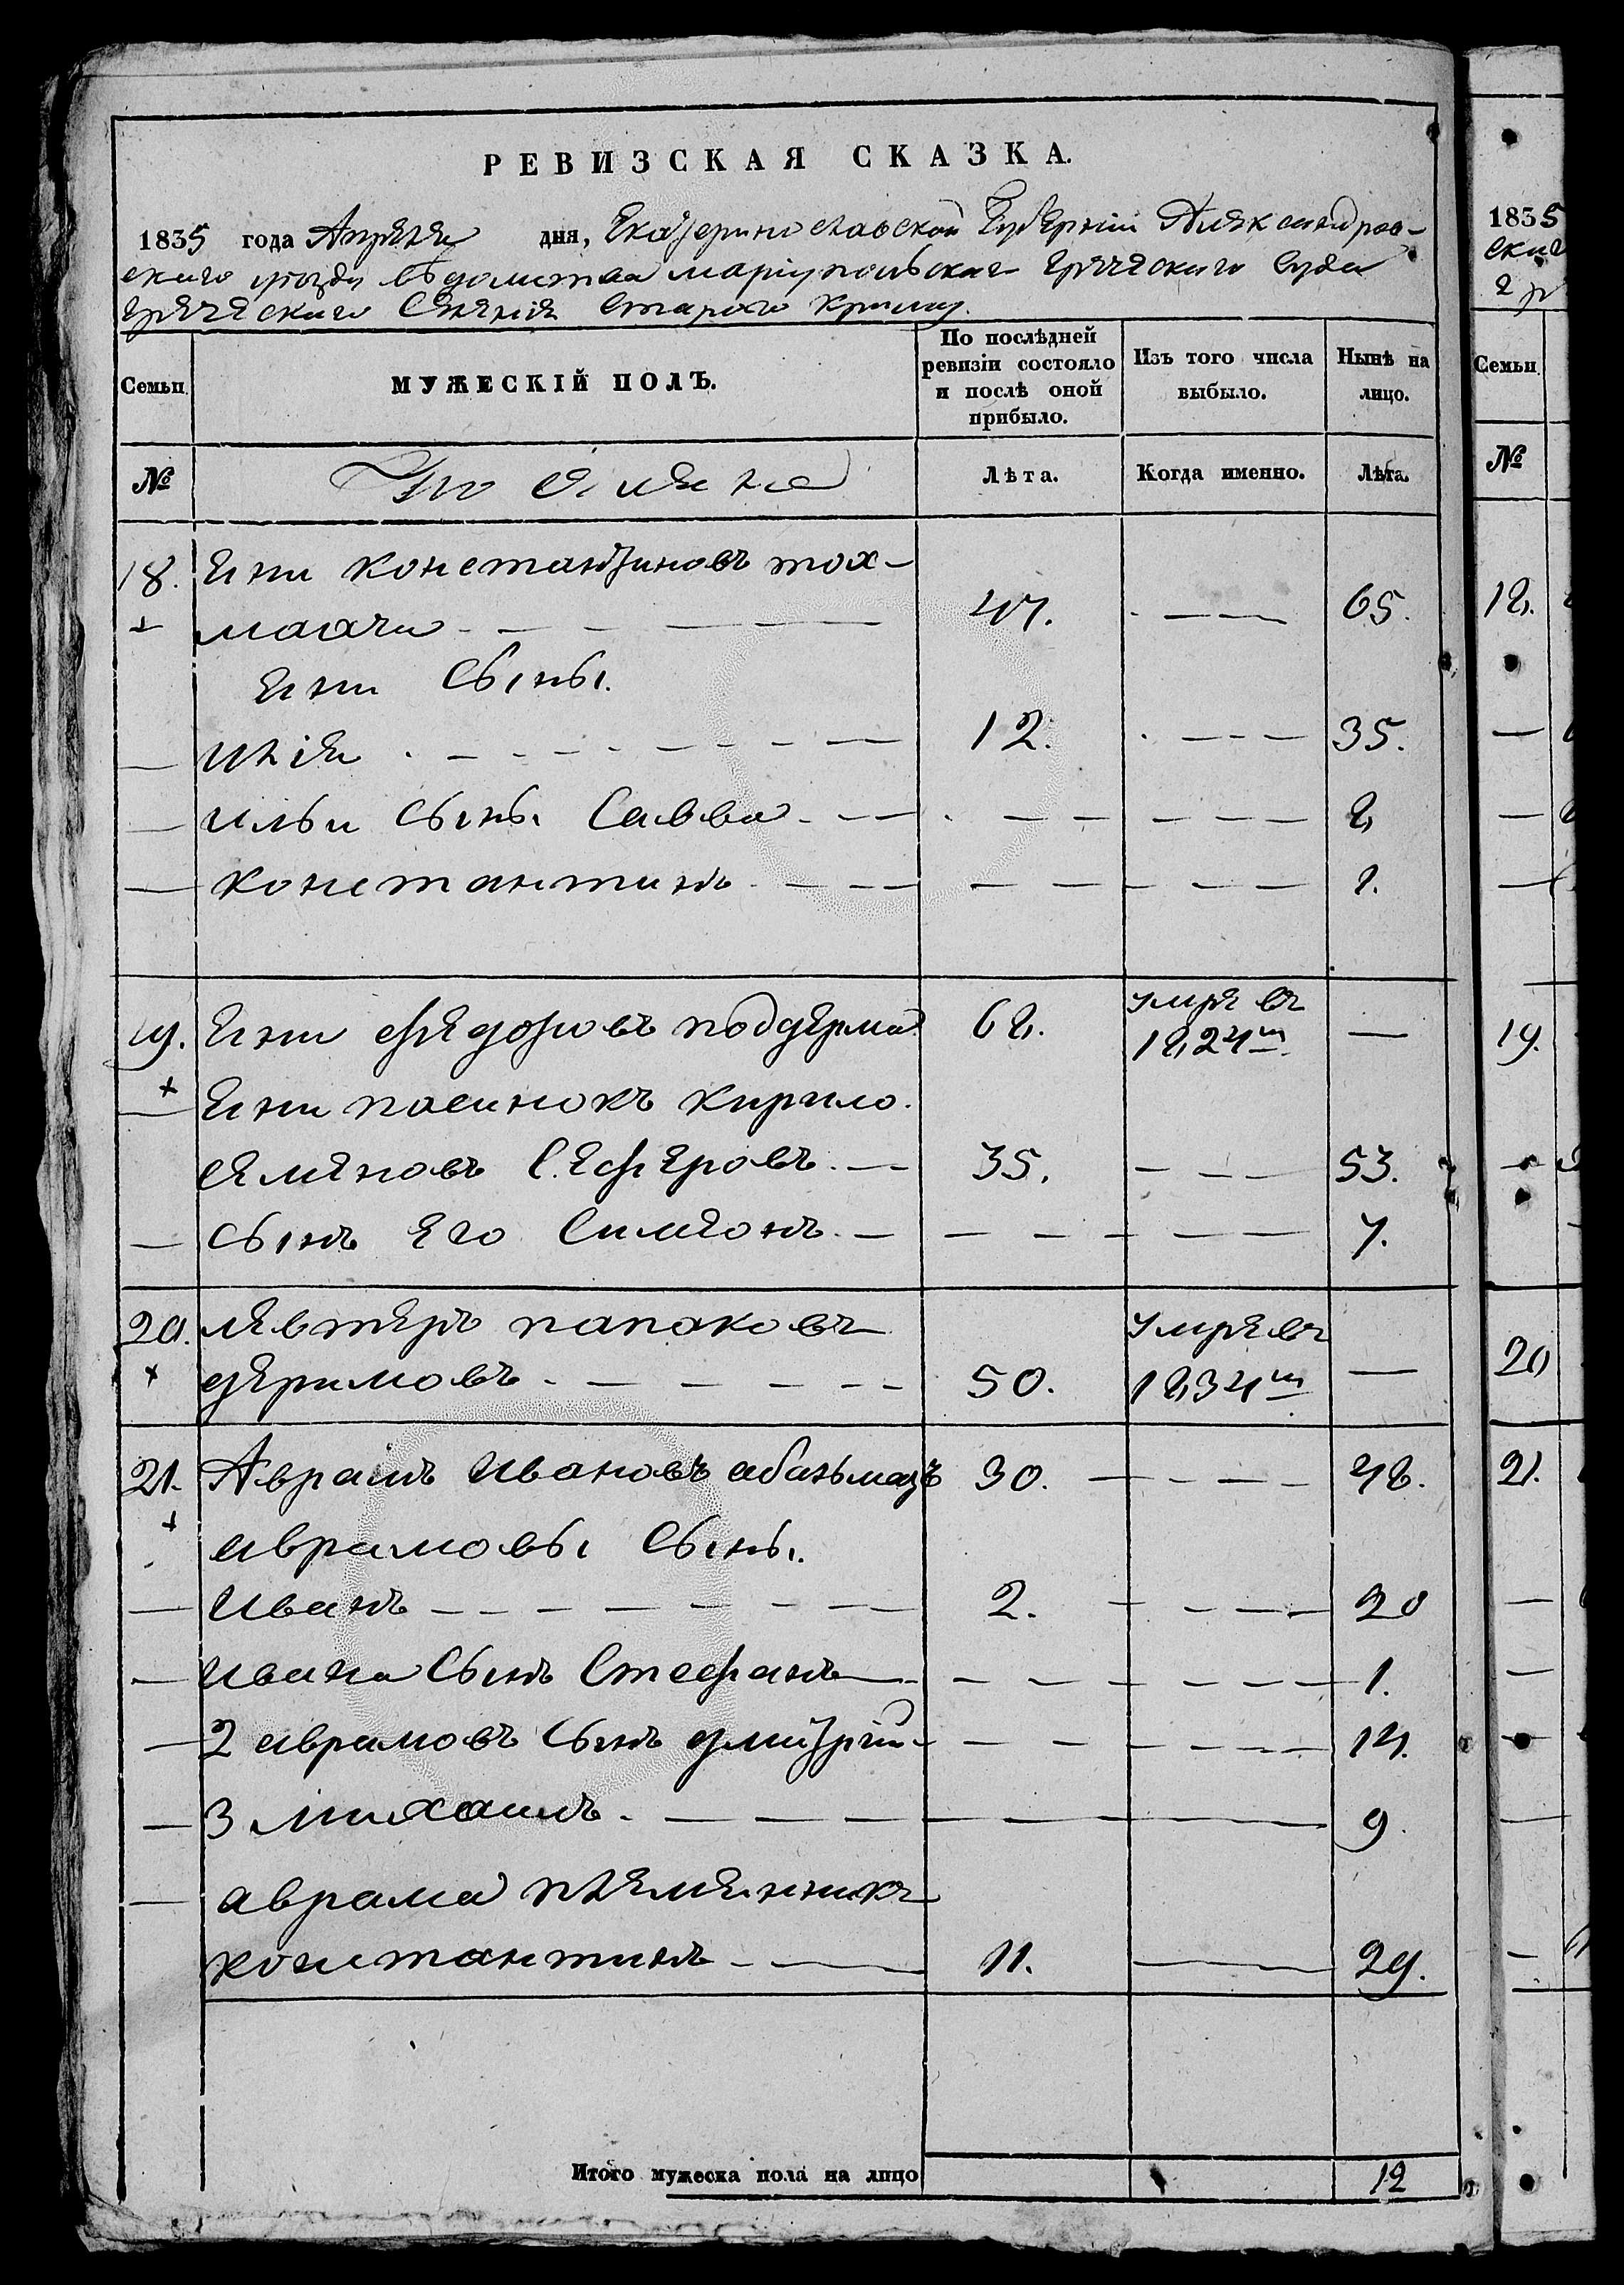 РЕВИЗСКАЯ СКАЗКА.
1835 года Апреля дня, Екатеринославской Губернии Александров-
скаго уезда ведомства мариупольскаго греческаго Суда
греческаго Селения Стараго Крыма.
Семьи МУЖЕСКІЙ ПОЛЪ. По послѣдней ревизіи состояло и послѣ оной прибыло. Изъ того числа выбыло. Нынѣ на лицо.
№ Лѣта. Когда именно. Лѣта.
18. Ели константиновъ тох-
маачи 47. 65.
Ели Сыны.
Илiя 12. 35.
Ильи Сыны Савва 8
константинъ 1.
19. Ели федоровъ поддерма 68. умре въ 1824м —
Ели пасинокъ кирило
семеновъ Сеферовъ 35. 53.
сынъ его Симеонъ 7.
20. левтеръ папаковъ
деримовъ 50. умре въ 1834м —
21. Аврамъ Ивановъ абаньмазъ 30. 48.
аврамовы Сыны.
Иванъ 2. 20
Ивана Сынъ Стефанъ 1.
2 аврамовъ Сынъ дмитрiй 14.
3 михаилъ 9.
аврама племенникъ
константинъ 11. 29.
Итого мужеска пола на лицо 12
1835
скаго
Семьи
№
18.
19.
20
21.